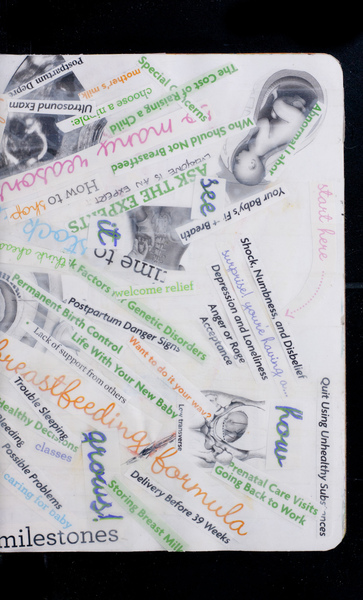 Postpartum Depre
Special Concerns
The Cost of Raising a Child
mother's milk
choose a
Ultrasound Exam
Abnormal Labor
Who Should Not Breastfeed
so many reasons
EVERYONE IS AN EXPERT
ASK THE EXPERTS
How to
shop
see
Your Baby's First Breath
start here
it
stock
time to
think ahead
k Factors
welcome relief
Shock, Numbness, and Disbelief
surprise! you're having a...
Depression and Loneliness
Anger or Rage
Acceptance
Genetic Disorders
Postpartum Danger Signs
Permanent Birth Control
Life With Your New Baby
Want to do it your way?
Lack of support from others
breastfeeding/formula
Trouble Sleeping
Healthy Decisions
eeding
classes
Possible Problems
caring for baby
grows!
transverse
how
Quit Using Unhealthy Substances
Prenatal Care Visits
Going Back to Work
Delivery Before 39 Weeks
Storing Breast Milk
milestones